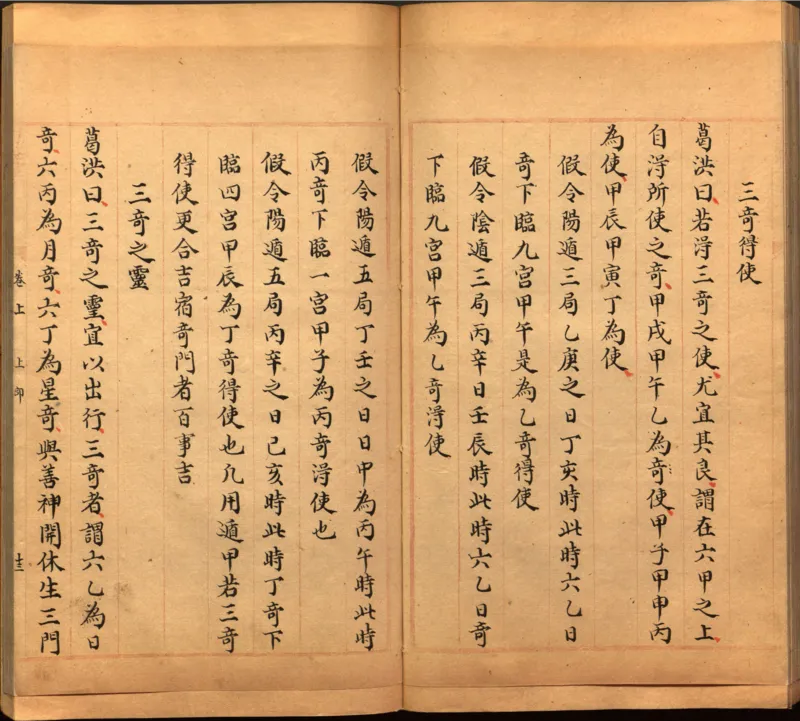 三奇得使
葛洪曰若淂三奇之使尤宜其良謂在六甲之上
自淂所使之奇甲戌甲午乙為奇使甲子甲申丙
為使甲辰甲寅丁為使
假令陽遁三局乙庚之日丁亥時此時六乙日
奇下臨九宮甲午是為乙奇得使
假令陰遁三局丙辛日壬辰時此時六乙日奇
下臨九宮甲午為乙奇淂使
假令陽遁五局丁壬之日日中為丙午時此時
丙奇下臨一宮甲子為丙奇淂使也
假令陽遁五局丙辛之日己亥時此時丁奇下
臨四宮甲辰為丁奇得使也凡用遁甲若三奇
得使更合吉宿奇門者百事吉
三奇之靈
葛洪曰三奇之靈宜以出行三奇者謂六乙為日
奇六丙為月奇六丁為星奇與善神開休生三門
卷上 上卯 十三